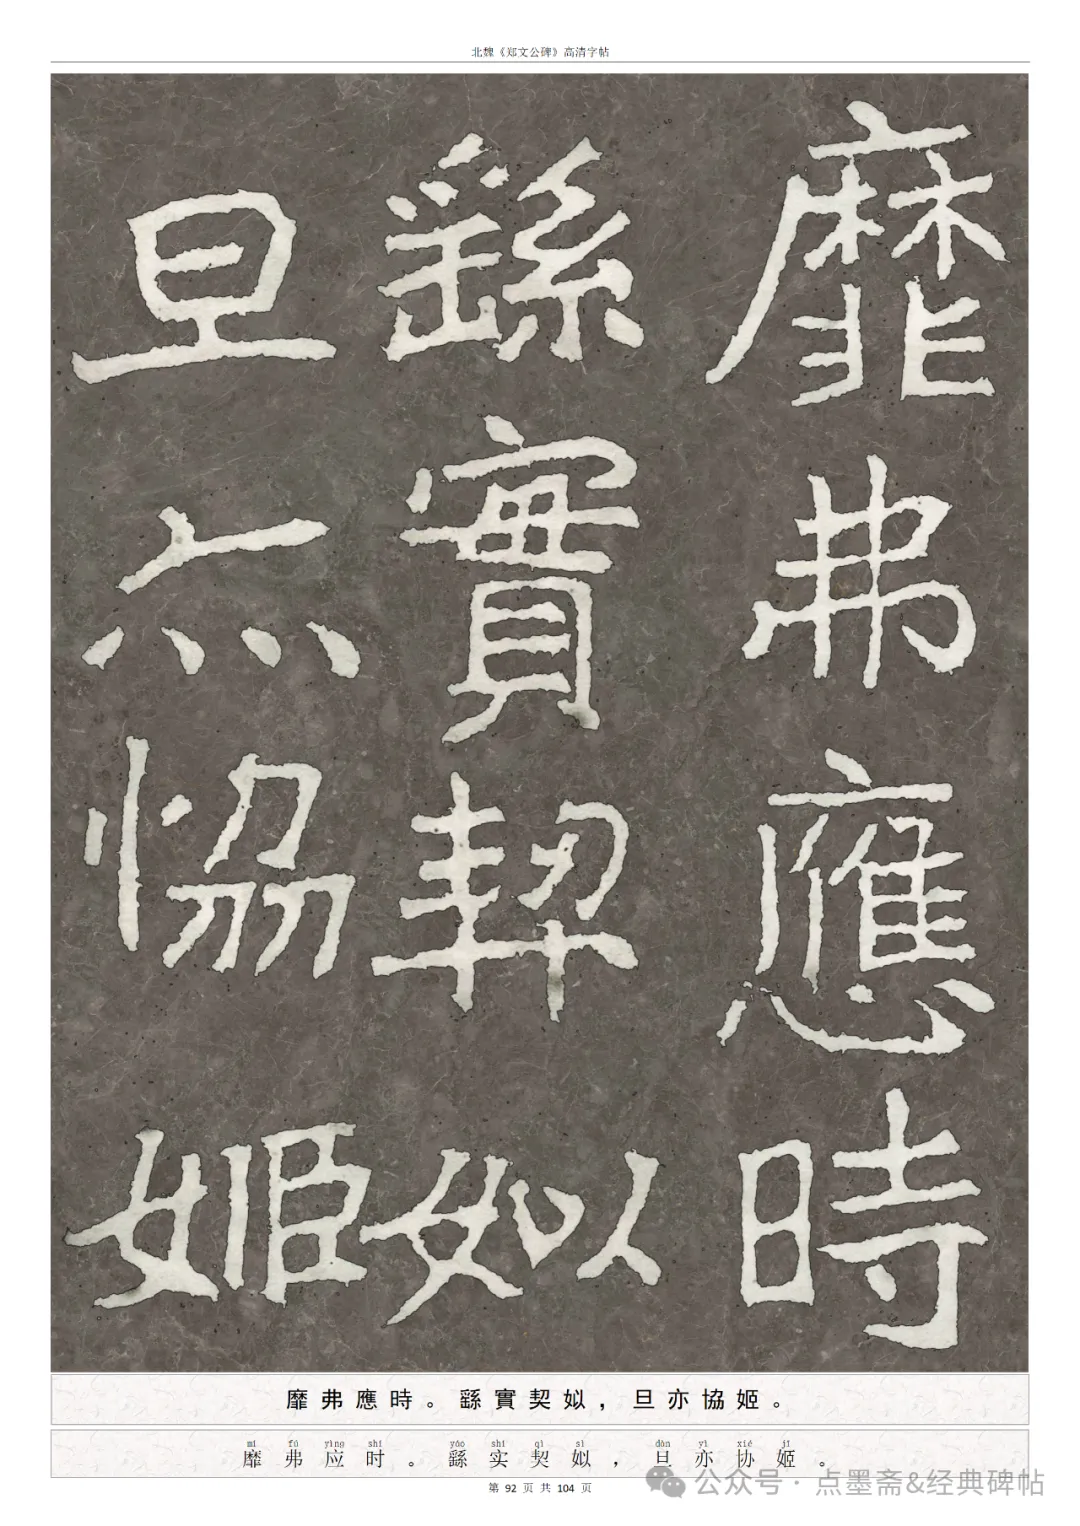 北魏《郑文公碑》高清字帖
靡弗應時
繇實契姒
旦亦恊姬
靡弗應時。繇實契姒，旦亦協姬。
mí fú yìng shí yáo shí qì sì dàn yì xié jī
靡弗应时。繇实契姒，旦亦协姬。
第 92 页 共 104 页
公众号 · 点墨斋&经典碑帖